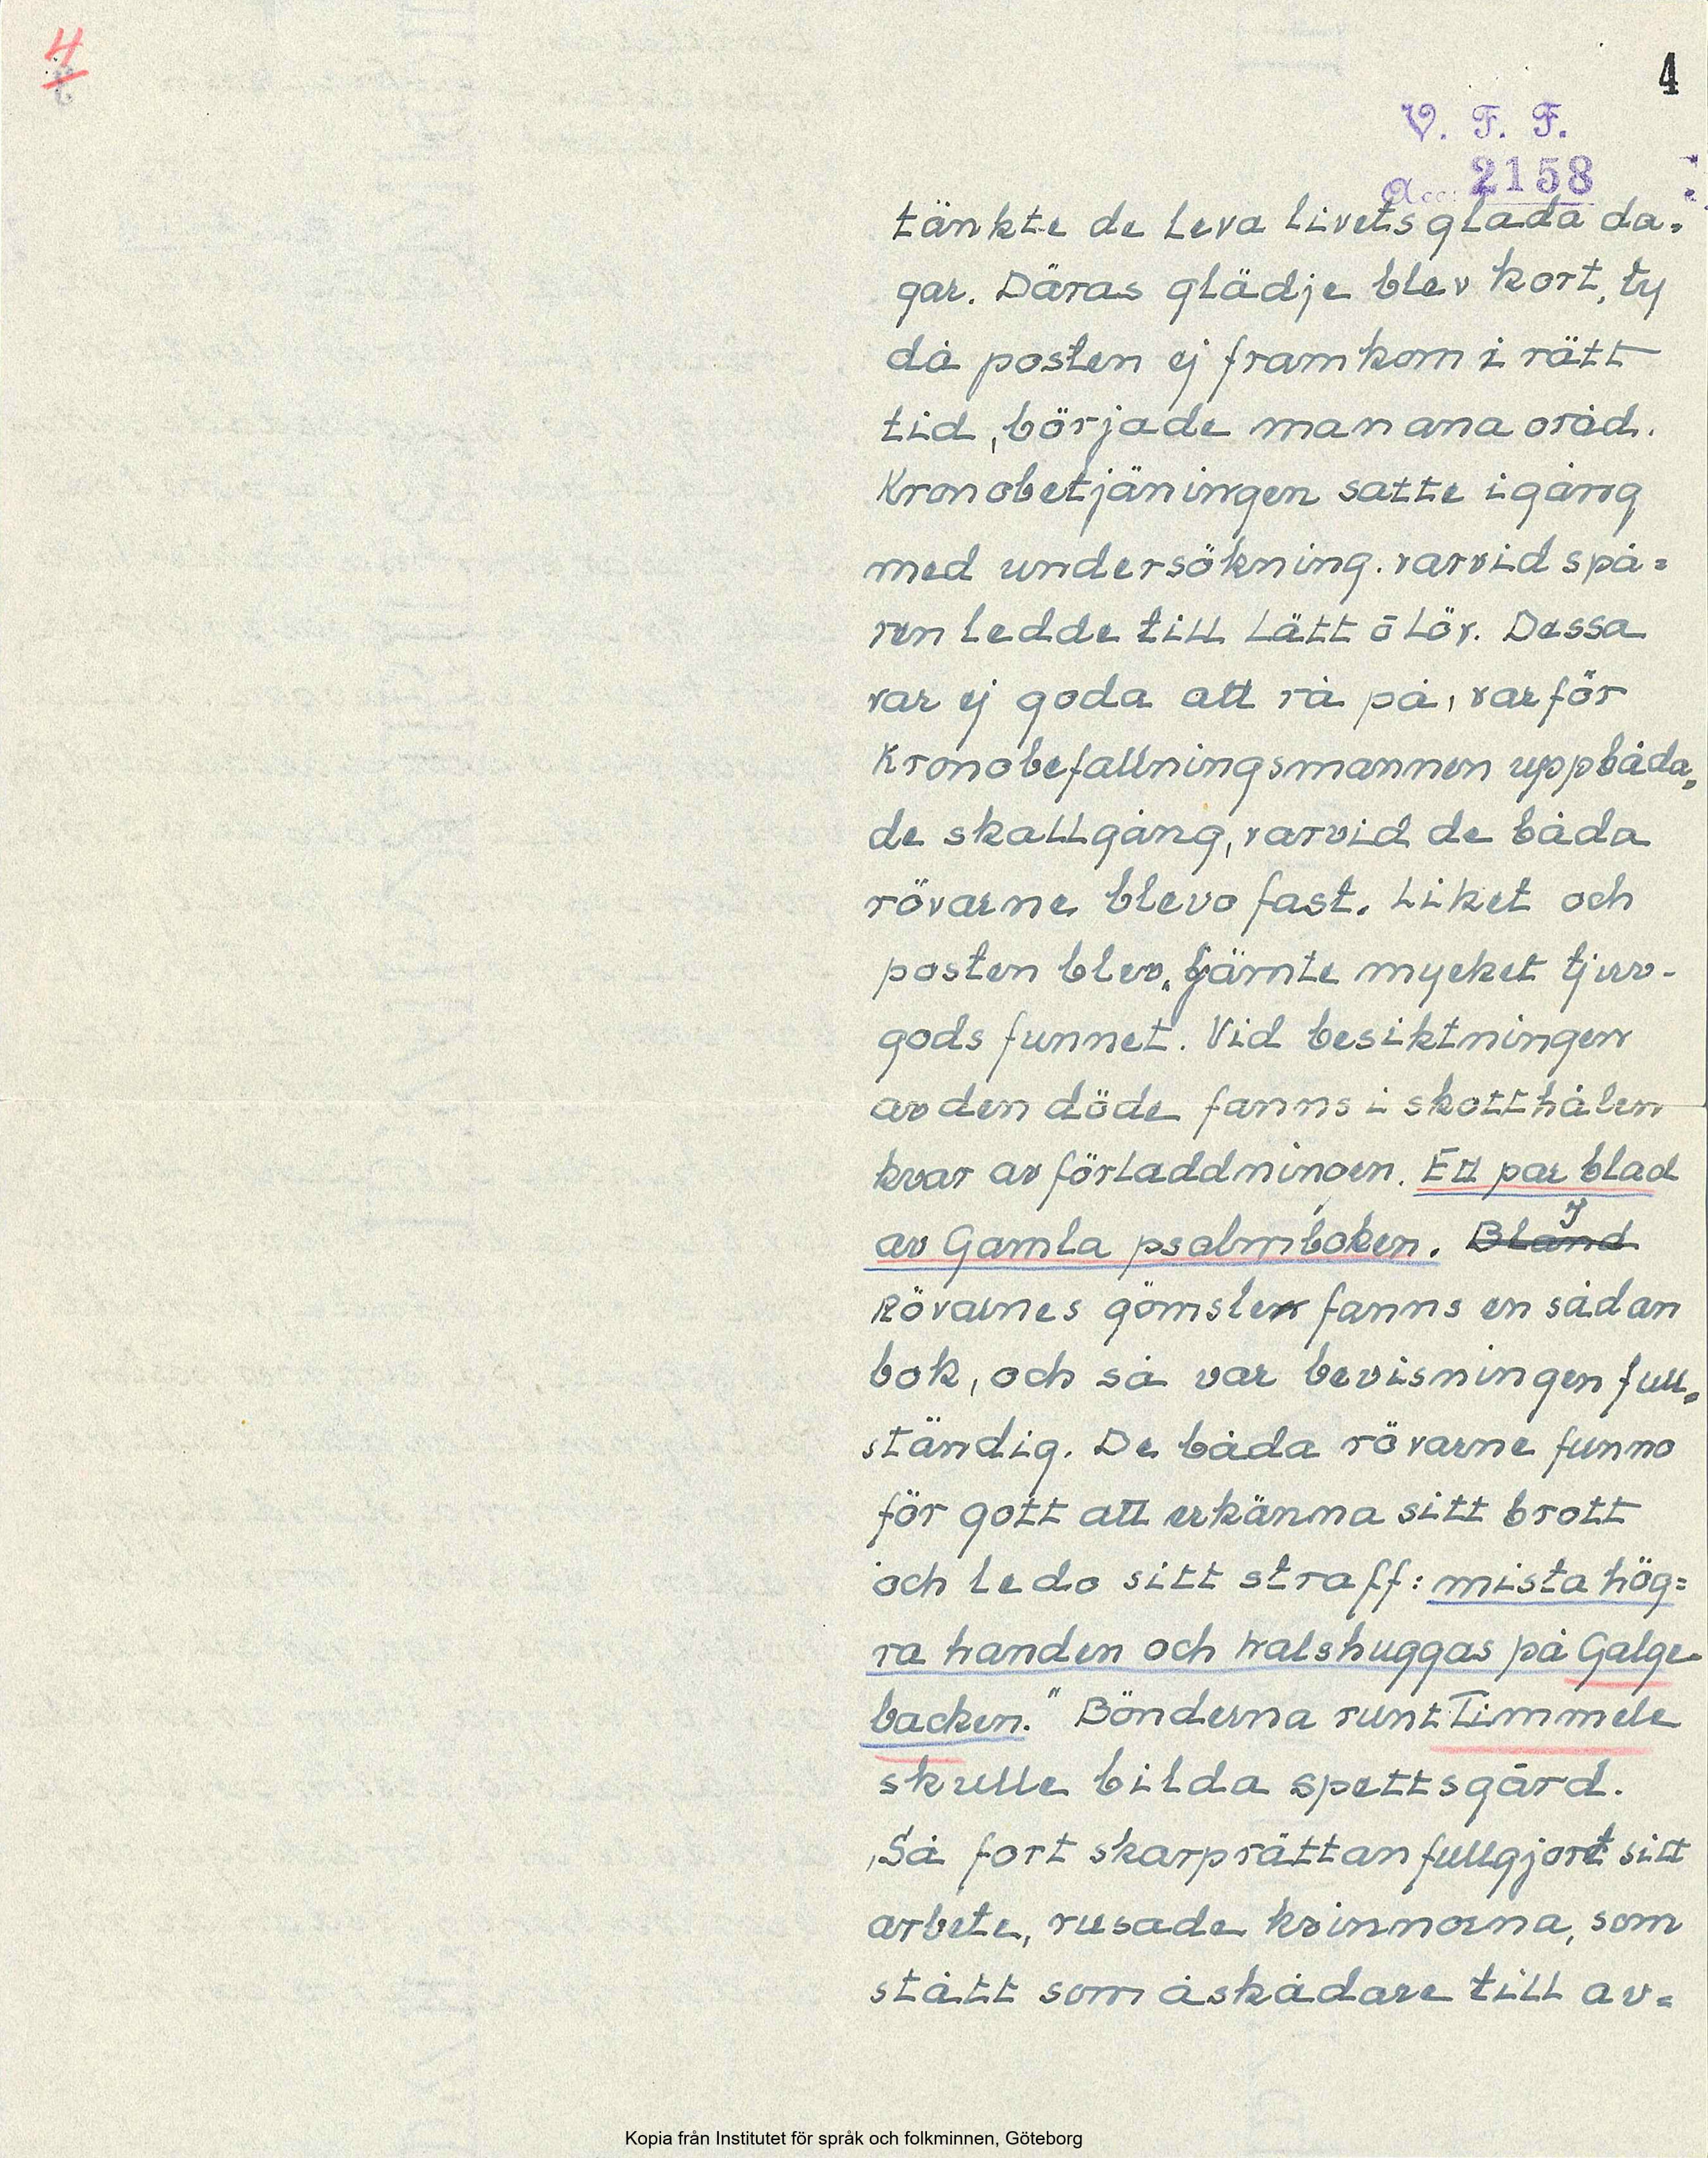 4
4
V. F. F.
Acc. 2158
tänkte de leva livets glada da=
gar. Däras glädje blev kort, ty
då posten ej framkom i rätt
tid, började man ana oråd.
Kronobetjäningen satte igång
med undersökning. varvid spå=
ren ledde till Lätt ō Löv. Dessa
var ej goda att rå på, varför
Kronobefallningsmannen uppbåda=
de skallgång, varvid de båda
rövarne blevo fast. Liket och
posten blev, jämte mycket tjuv-
gods funnet. Vid besiktningen
av den döde fanns i skotthålen
kvar av förladdningen. Ett par blad
av Gamla psalmboken. Bland I
Rövarnes gömslen fanns en sådan
bok, och så var bevisningen full=
ständig. De båda rövarne funno
för gott att erkänna sitt brott
och ledo sitt straff: mista hög=
ra handen och halshuggas på Galge=
backen." Bönderna runt Timmele
skulle bilda spettsgård.
Så fort skarprättan fullgjort sitt
arbete, rusade kvinnorna, som
stått som åskådare till av=
Kopia från Institutet för språk och folkminnen, Göteborg